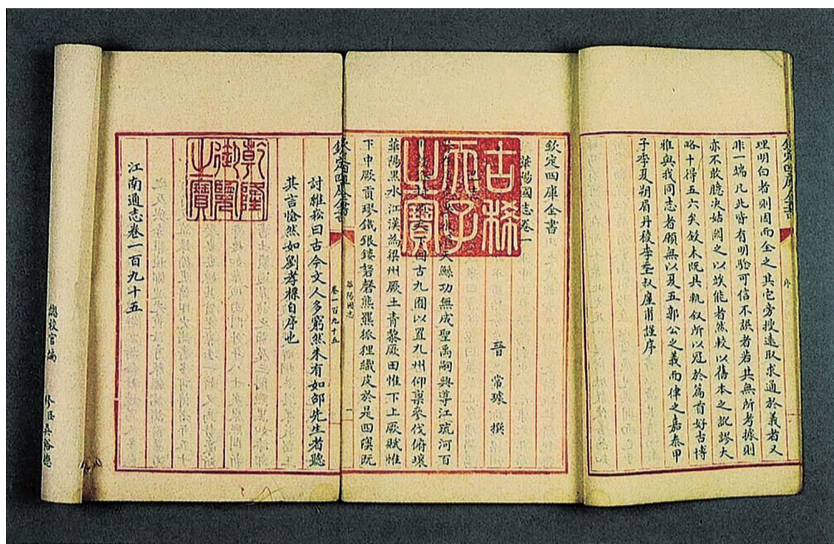 欽定四庫全書
序
理明白者則因而全之其它旁搜遠取求通於義者又
非一端凡此皆有明驗可信不誣者若其無所考據則
亦不敢臆決姑闕之以竢能者然較以舊本之訛謬大
略十得五六矣鋟木既具輒叙所以冠於篇首好古博
雅與我同志者願無以夏五郭公之義而律之嘉泰甲
子季夏朔眉丹稜李叔廑甫謹序
欽定四庫全書
華陽國志卷一
古稀天子之寶
晉 常璩 撰
功無成聖禹嗣興導江疏河百
古九囿以置九州仰稟參伐俯壤
華陽黑水江漢為梁州厥土青黎厥田惟下上厥賦惟
下中厥貢璆鐵銀鏤砮磬熊羆狐狸織皮於是四隩既
欽定四庫全書
華陽國志
一
卷一百九十五
討雅菘曰古今文人多窮然未有如郃先生者聽
其言愴然如劉孝標自序也
乾隆御覽之寶
江南通志卷一百九十五
總校官編修